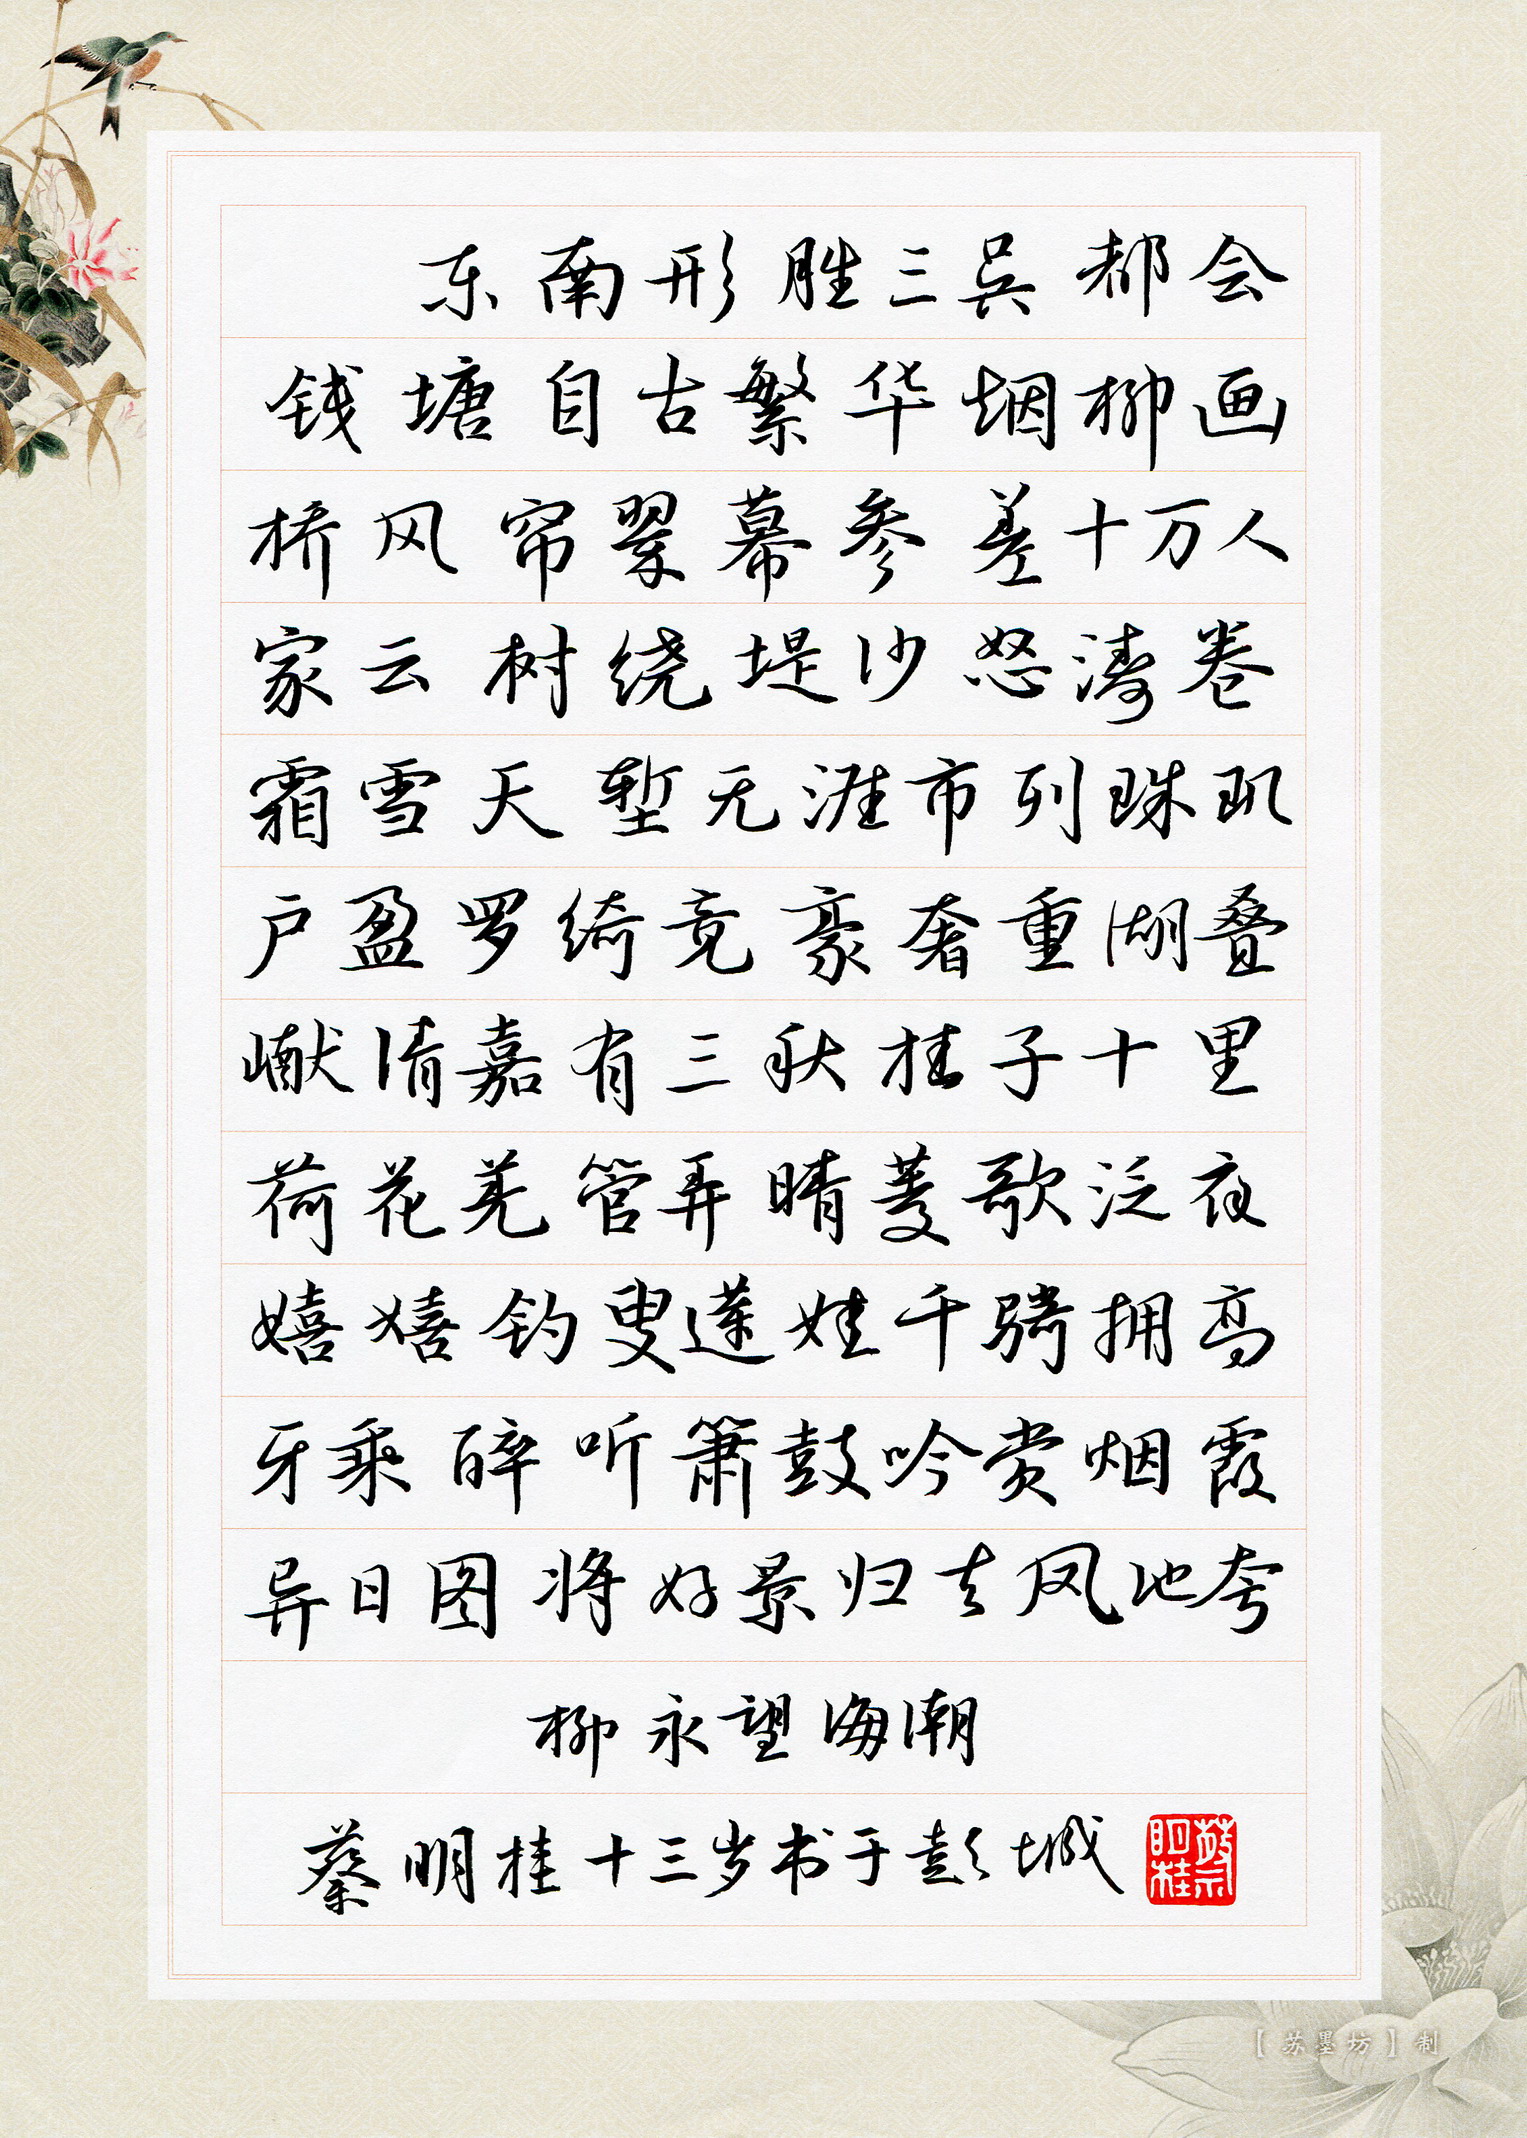 东南形胜三吴都会
钱塘自古繁华烟柳画
桥风帘翠幕参差十万人
家云树绕堤沙怒涛卷
霜雪天堑无涯市列珠玑
户盈罗绮竞豪奢重湖叠
巘清嘉有三秋桂子十里
荷花羌管弄晴菱歌泛夜
嬉嬉钓叟莲娃千骑拥高
牙乘醉听箫鼓吟赏烟霞
异日图将好景归去凤池夸
柳永望海潮
蔡明桂十三岁书于彭城
蔡明桂
【苏墨坊】制